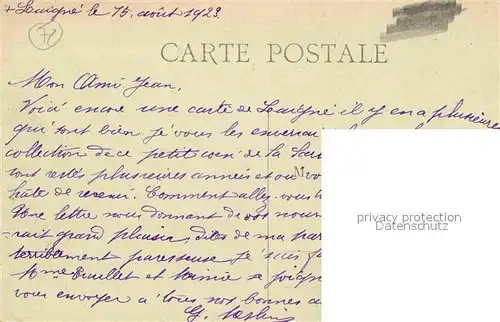 + Laigné le 15 août 1923
71
CARTE POSTALE
Mon Ami Jean.
Voici encore une carte de Laigné il y en a plusieures
qui sont bien je vous les enverrai
collection de ce petit coin de la Sar
sont restés plusieures années et ou vo
hâte de revenir. Comment allez-vous
Une lettre nous donnant de vos nouv
rait grand plaisir, dites de ma par
terriblement paresseuse je suis
Mme et se joign
vous envoyer a tous nos bonnes a
G.
privacy protection
Datenschutz